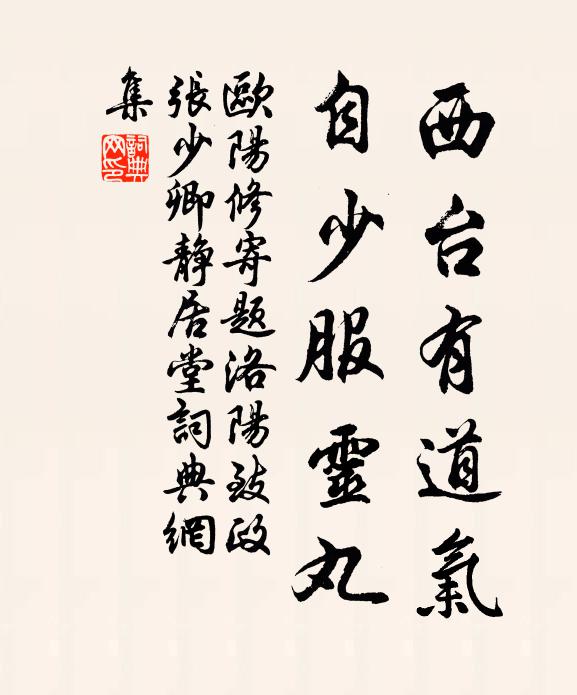 西台有道氣
自少服靈丸
歐陽修寄題洛陽致政
張少卿靜居堂詞典網
集
詞典網印